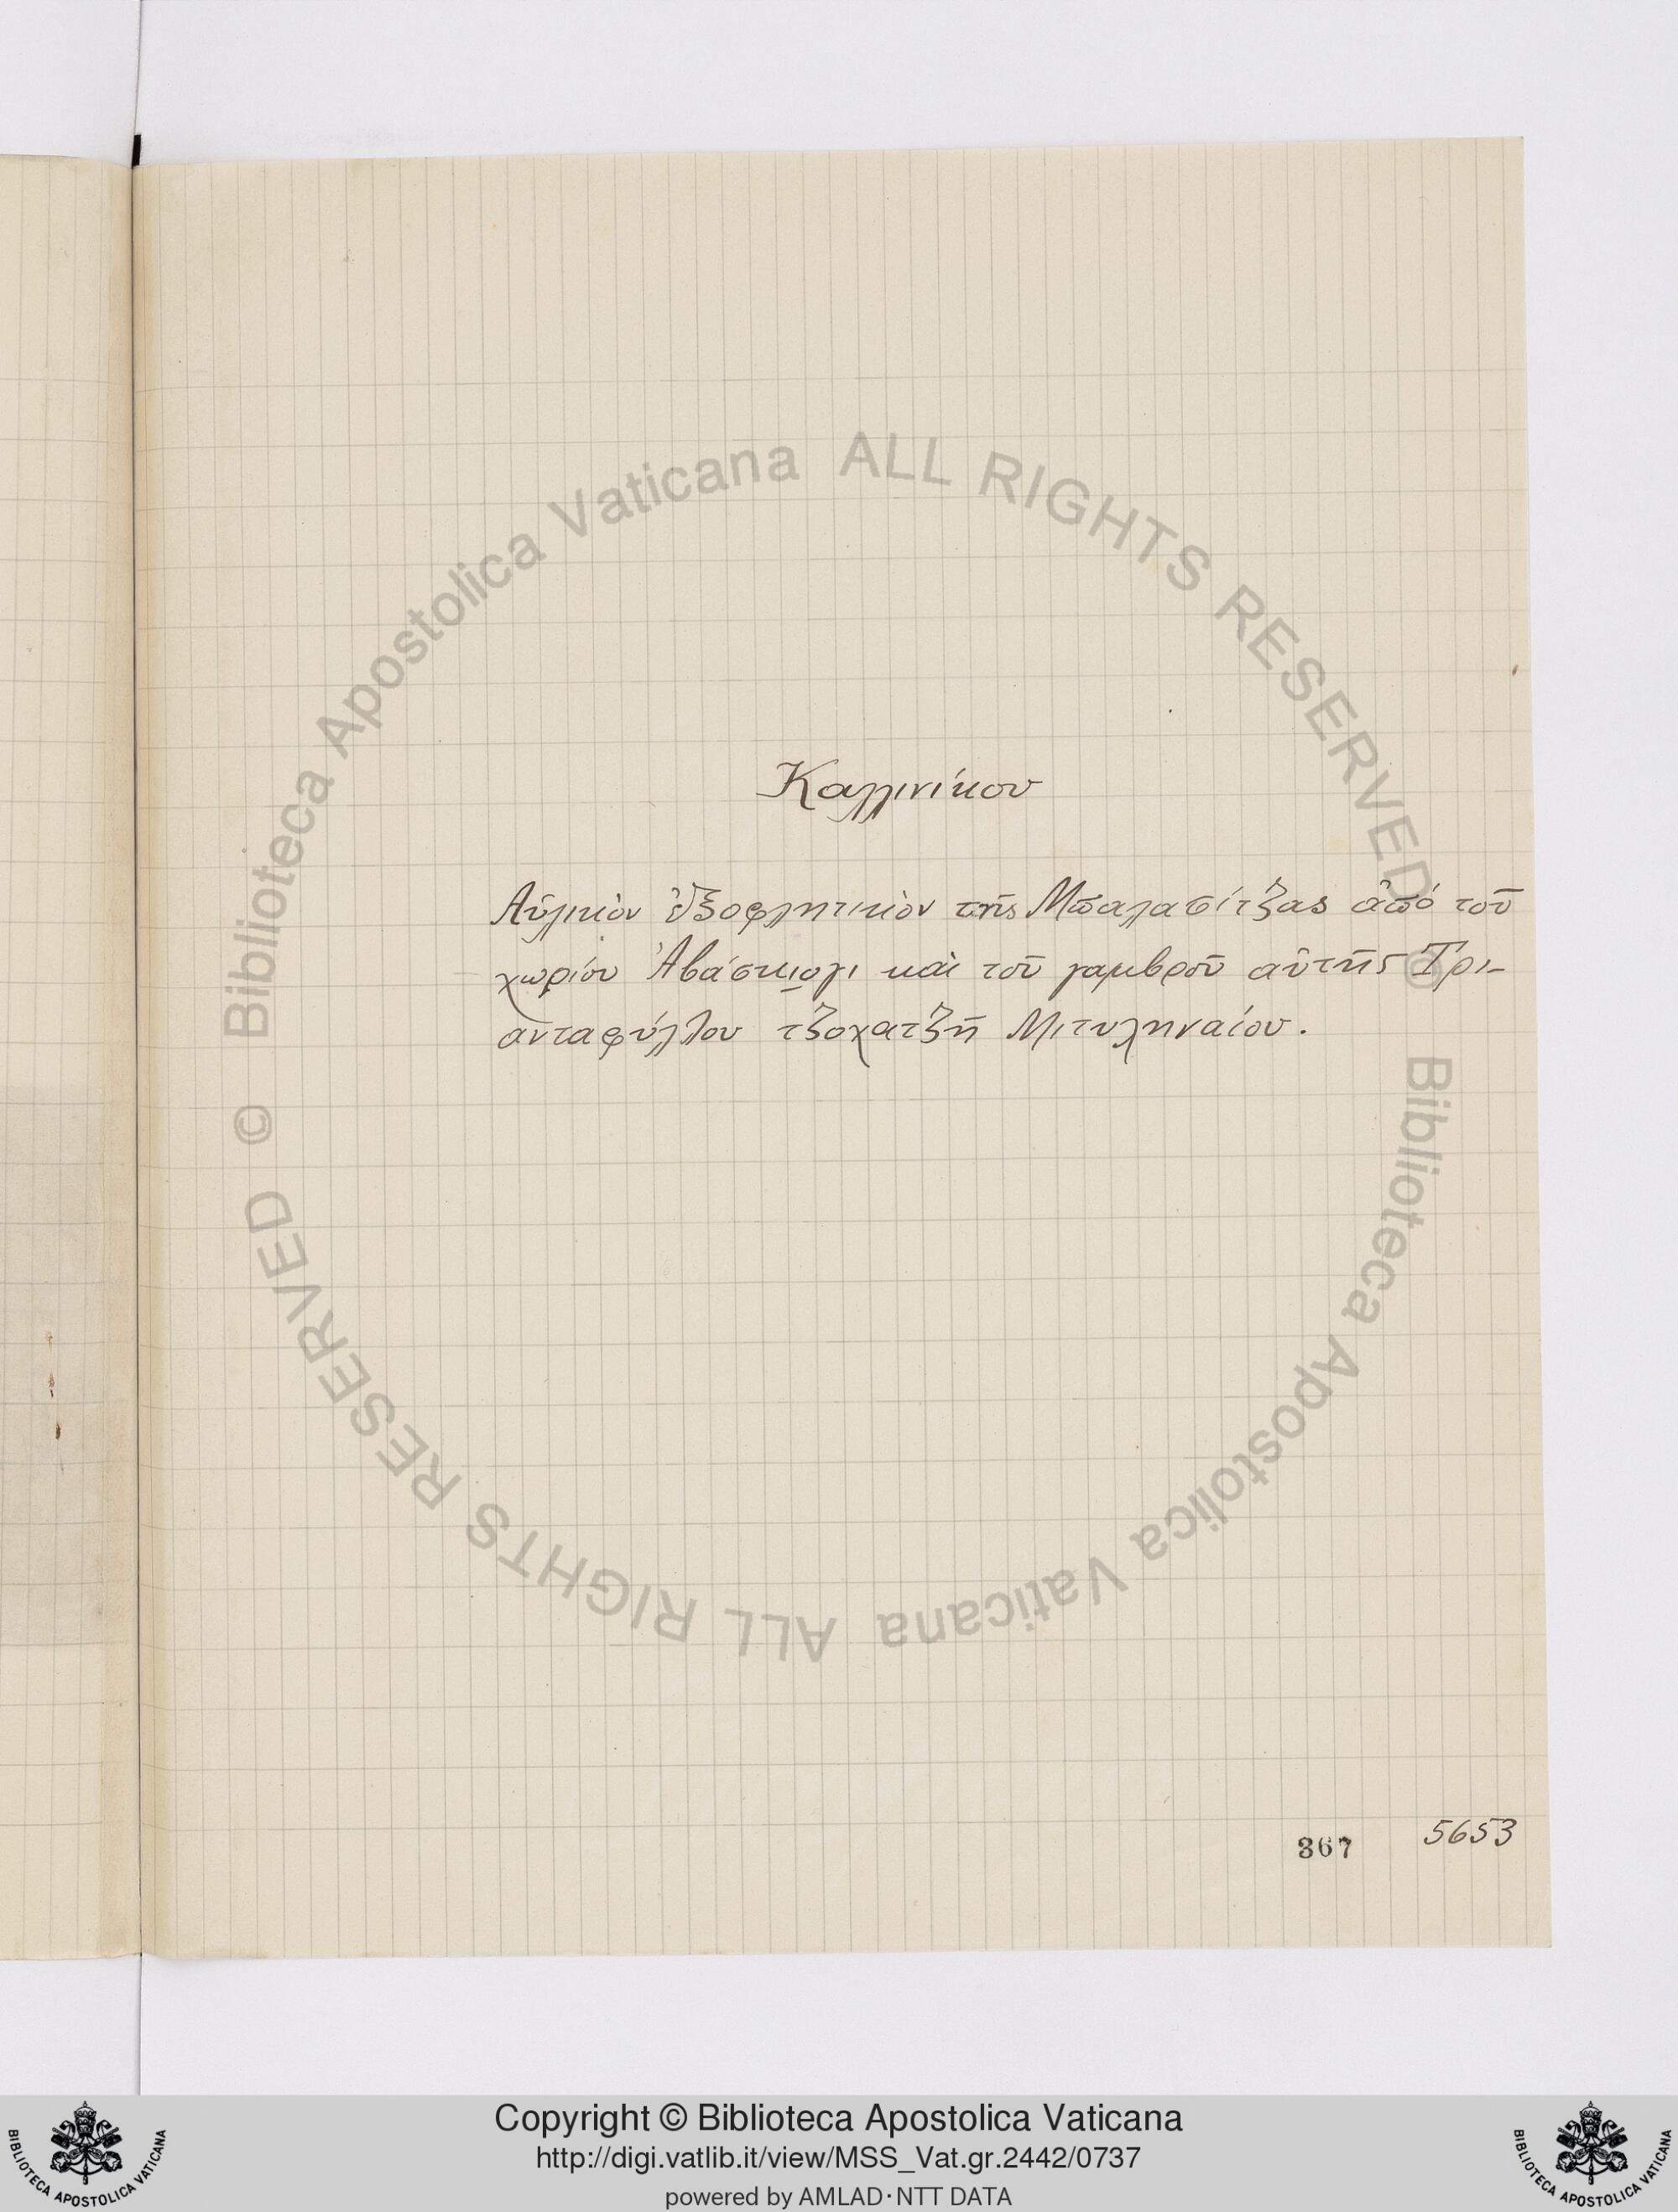 Καλλινίκου
Αὐλικὸν ἐξοφλητικὸν τῆς Μπαλασίτζας ἀπό τοῦ
χωρίου Ἀβάσκιογι καὶ τοῦ γαμβροῦ αὐτῆς Τρι-
ανταφύλλου τζοχατζῆ Μιτυληναίου.
367 5653
© Biblioteca Apostolica Vaticana ALL RIGHTS RESERVED © Biblioteca Apostolica Vaticana ALL RIGHTS RESERVED
Copyright © Biblioteca Apostolica Vaticana
http://digi.vatlib.it/view/MSS_Vat.gr.2442/0737
powered by AMLAD·NTT DATA
BIBLIOTECA APOSTOLICA VATICANA
BIBLIOTECA APOSTOLICA VATICANA